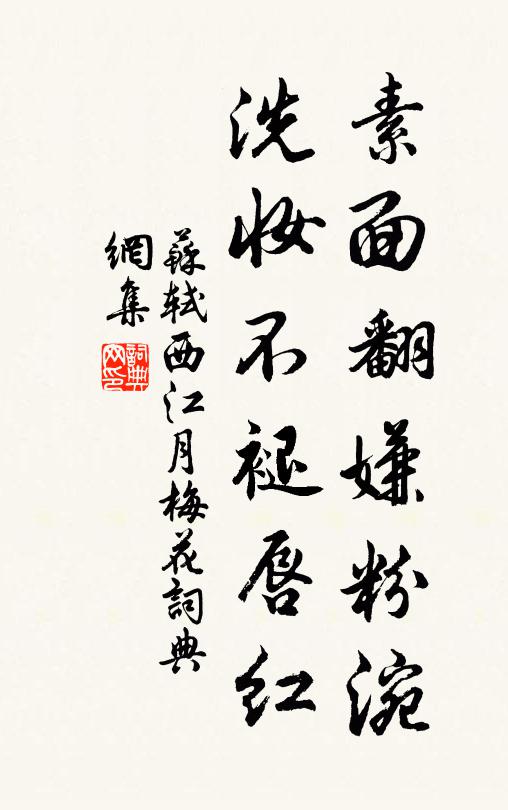 素面翻嫌粉涴
洗妝不褪唇紅
蘇軾西江月梅花詞典
網集
詞典
网印